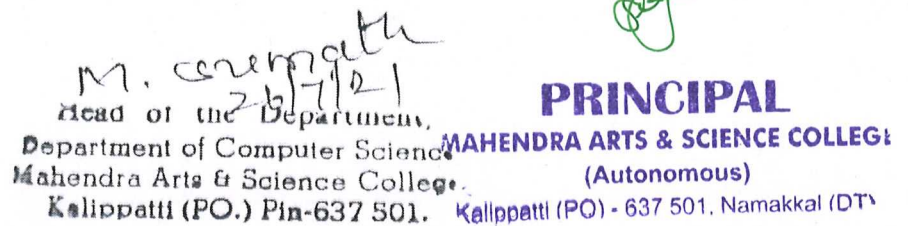 M.
26/7/21
Head of the Department,
Department of Computer Science
Mahendra Arts & Science College.
Kalippatti (PO.) Pin-637 501.
PRINCIPAL
MAHENDRA ARTS & SCIENCE COLLEGE
(Autonomous)
Kalippatti (PO) - 637 501, Namakkal (DT)